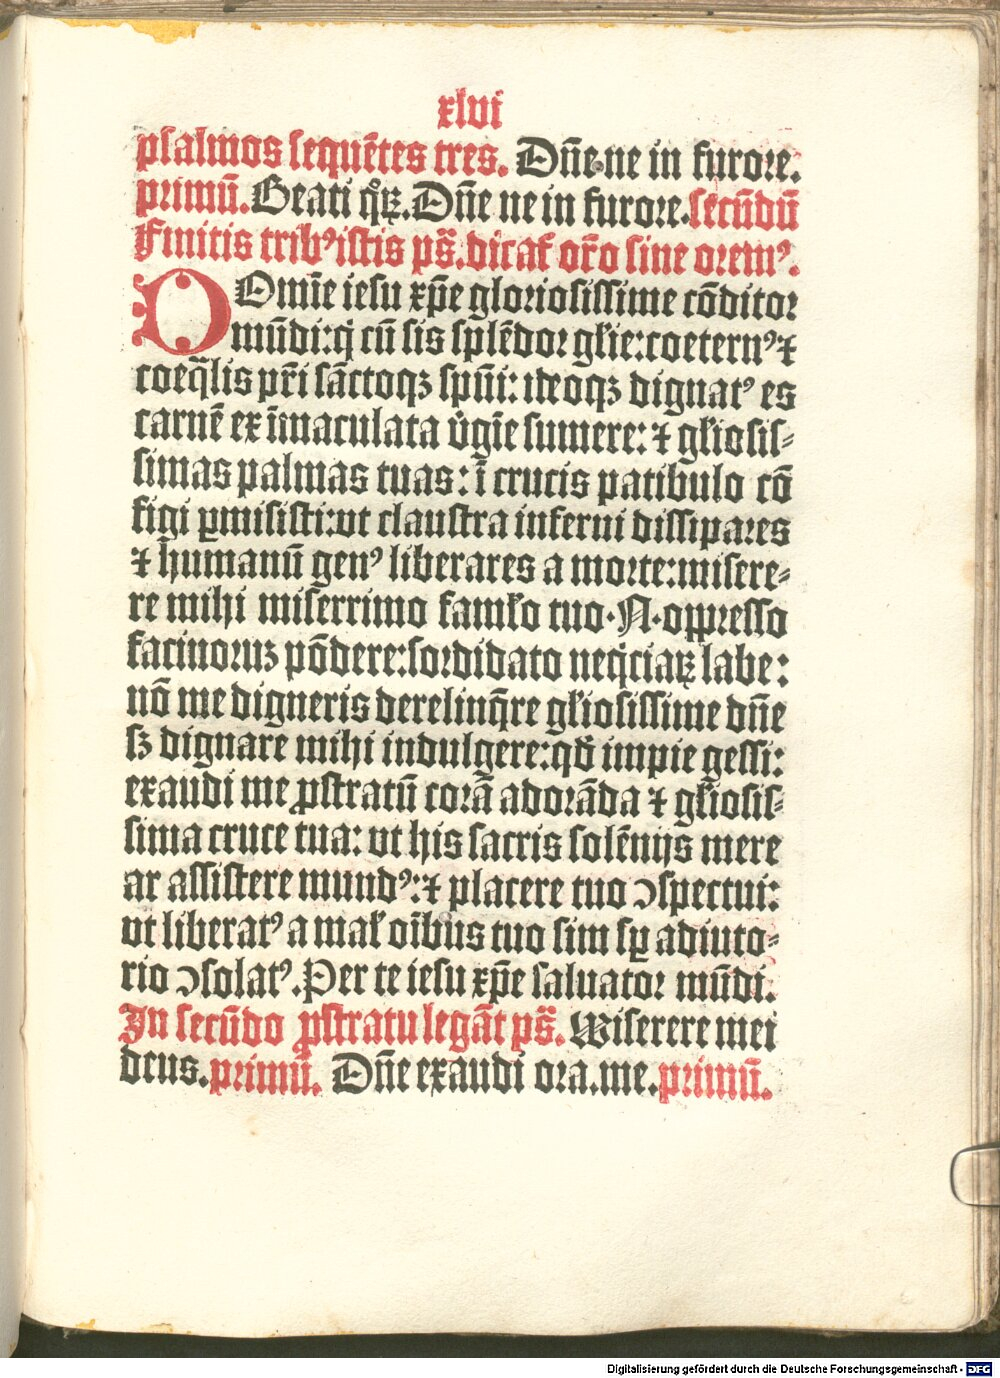 xlvi
psalmos sequētes tres. Dn̄e ne in furore.
primū. Beati qͦꝝ. Dn̄e ne in furore. secūdū
Finitis tribꝰ istis ps̄. dicat̄ or̄o sine oremꝰ.
O Dmīe iesu xp̄e gloriosissime cōditor
mūdi: q̇ cū sis splēdor gl̄ie: coeternꝰ ⁊
coeq̄lis pr̄i sāctoqꝫ spūi: ideoqꝫ dignatꝰ es
carnē ex īmaculata v̓gīe sumere: ⁊ gl̄iosis⸗
simas palmas tuas: ī crucis patibulo cō
figi ꝑmisisti: vt claustra inferni dissipares
⁊ humanū genꝰ liberares a morte: misere⸗
re mihi miserrimo famĺo tuo · N · oppresso
facinoruꝫ pōdere: sordidato neq̇ciaꝝ labe:
nō me digneris derelinq̄re gl̄iosissime dn̄e
sꝫ dignare mihi indulgere: qđ impie gessi:
exaudi me ꝓstratū corā adorāda ⁊ gl̄iosis⸗
sima cruce tua: vt his sacris solēnijs mere
ar assistere mundꝰ: ⁊ placere tuo ꝯspectui:
vt liberatꝰ a mal̄ oībus tuo sim sꝑ adiuto⸗
rio ꝯsolatꝰ. Per te iesu xp̄e saluator mūdi.
In secūdo ꝓstratu legāt ps̄. Miserere mei
deus. primū. Dn̄e exaudi ora. me. primū.
Digitalisierung gefördert durch die Deutsche Forschungsgemeinschaft - DFG